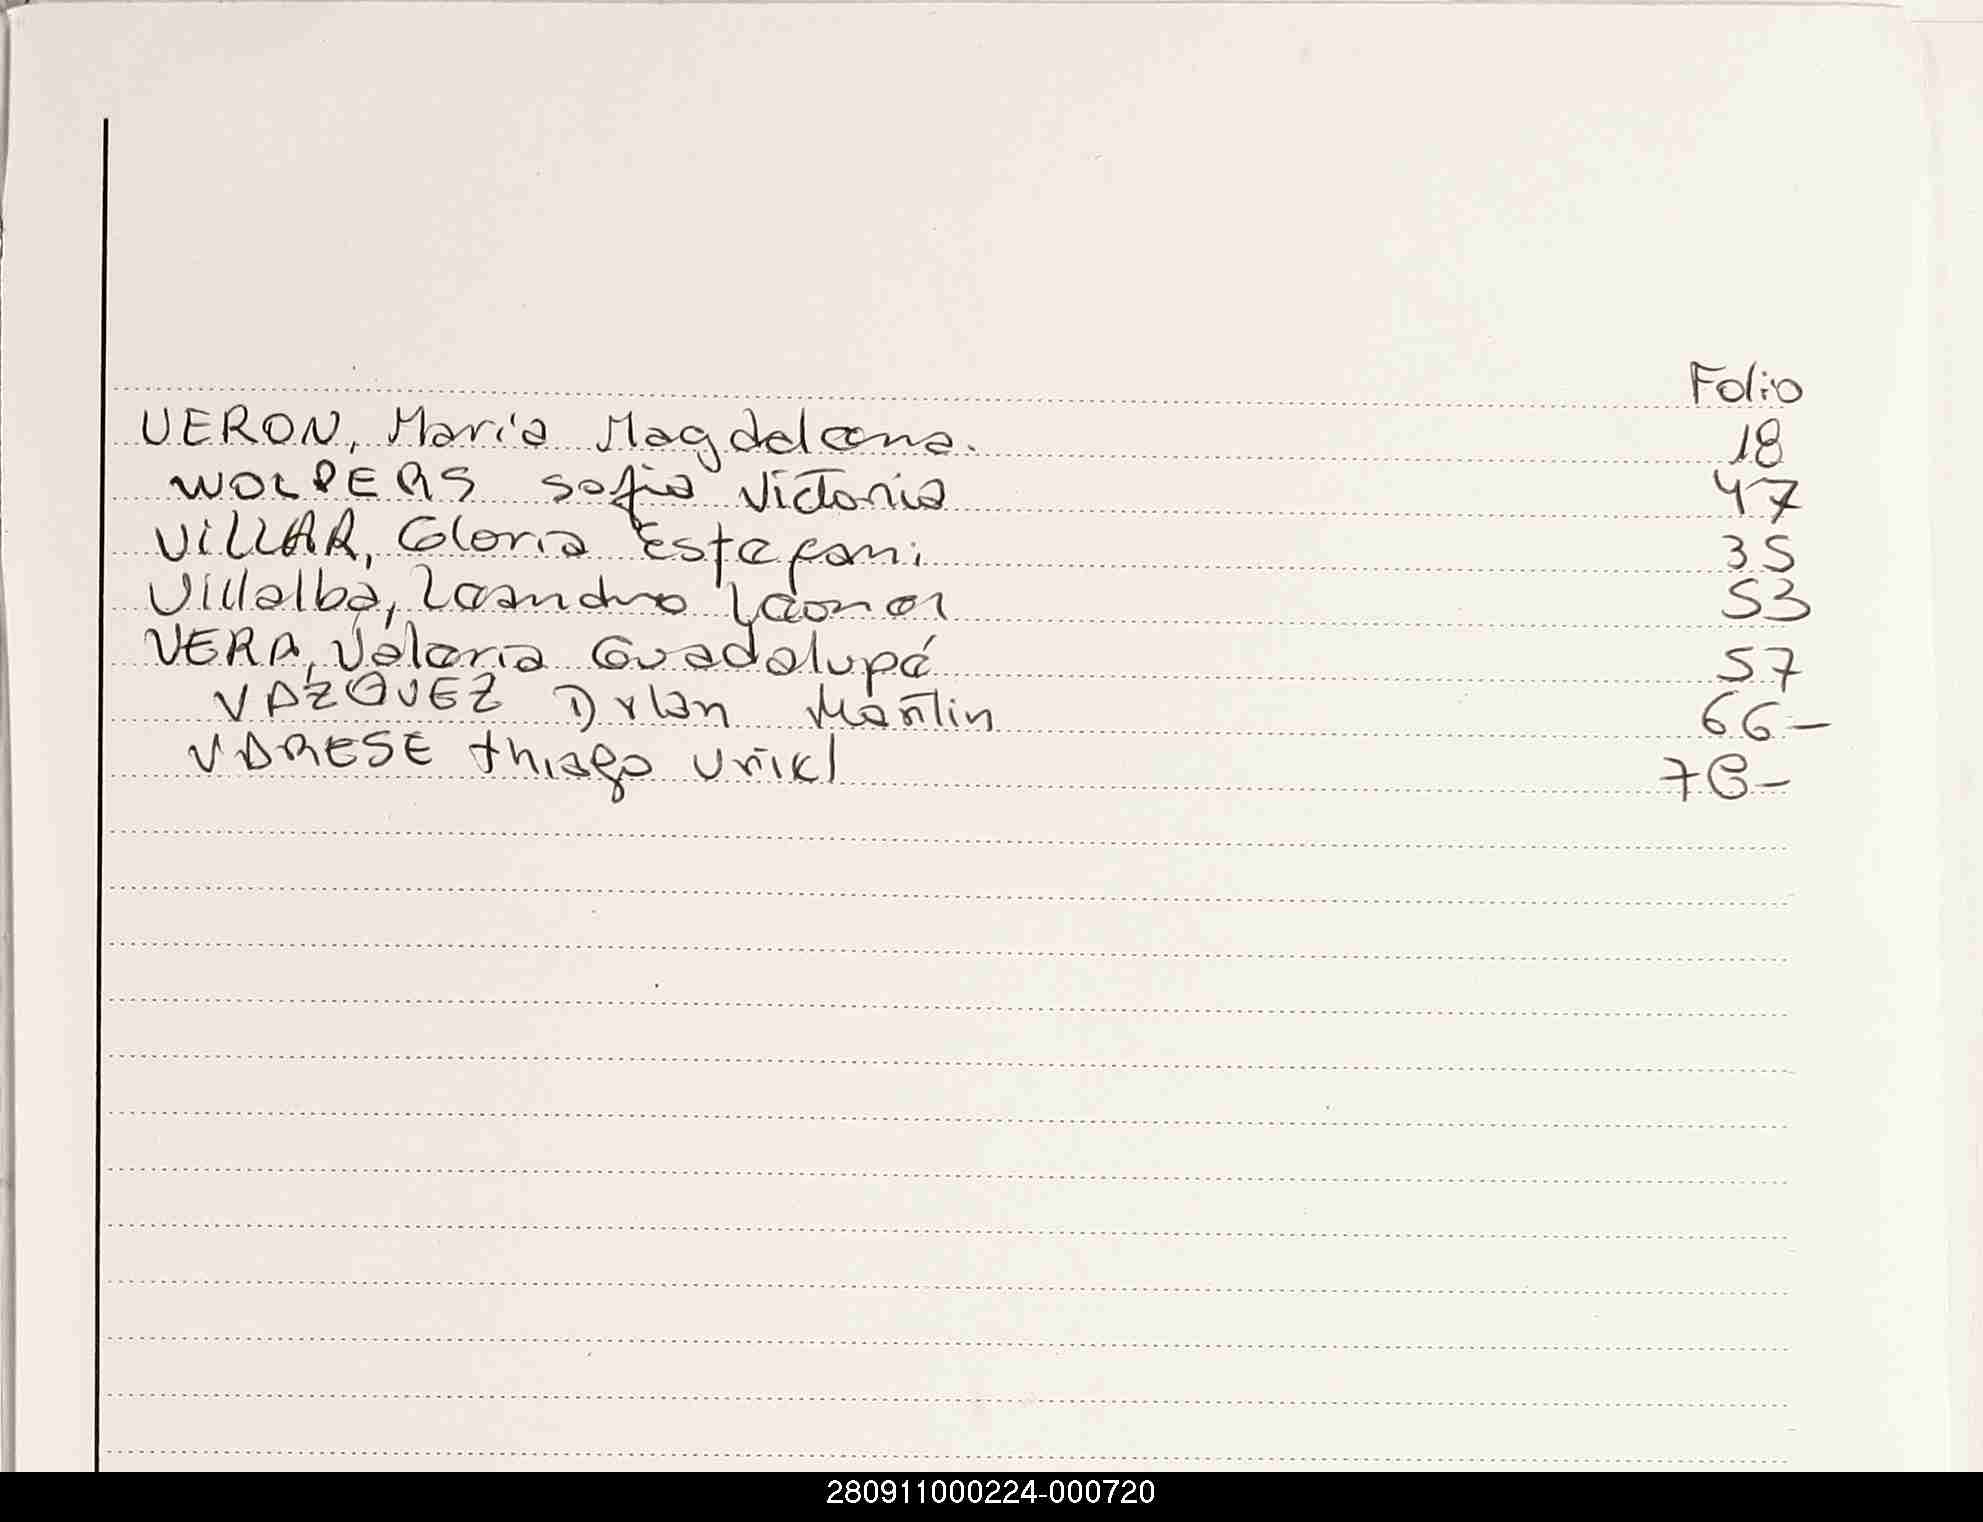 Folio
VERON, María Magdalena. 18
WOLPERS Sofia Victoria 47
VILLAR, Gloria Estefani 35
Villalba, Leandro Leonel 53
VERA, Valeria Guadalupé 57
VAZQUEZ Dylan Martin 66-
VARESE thiago Uriel
280911000224-000720